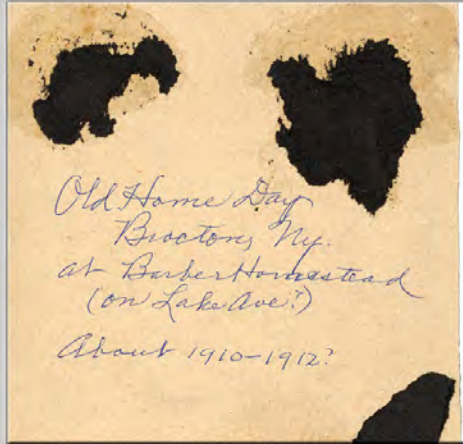 Old Home Day
Brocton, Ny.
at Barber Homestead
(on Lake Ave?)
About 1910-1912?